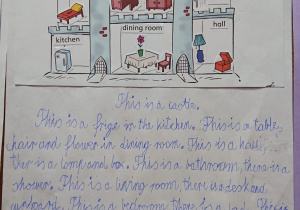 hall
dining room
kitchen
This is a castle.
This is a frige in the kitchen. This is a table,
chair and flower in dining room. This is a hall,
ther is a lamp and box. This is a bathroom, there is a
shower. This is a living room, there is desk and
cupboard. This is bedroom there is a bed. This is